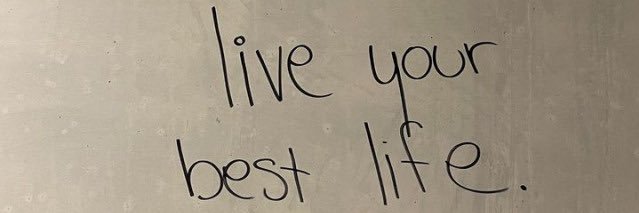 live your
best life.